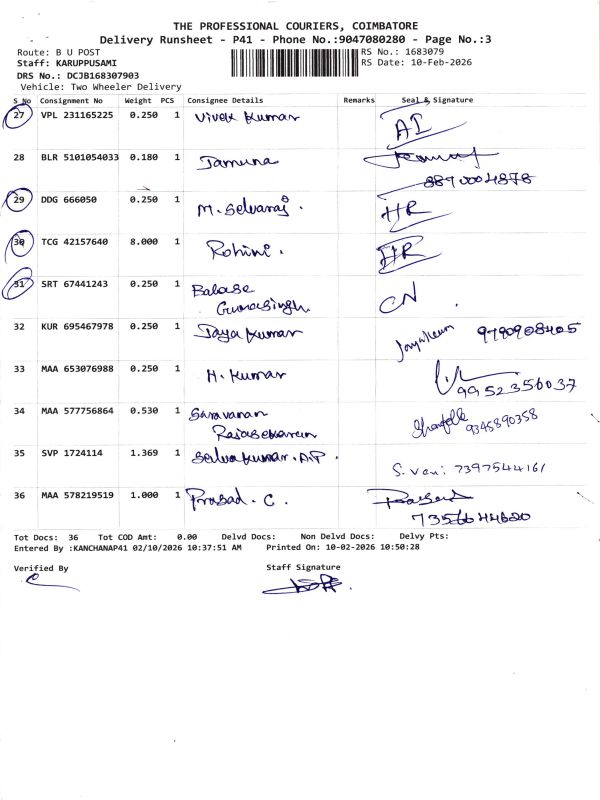 THE PROFESSIONAL COURIERS, COIMBATORE
Delivery Runsheet - P41 - Phone No.:9047080280 - Page No.:3
Route: B U POST
RS No.: 1683079
Staff: KARUPPUSAMI
RS Date: 10-Feb-2026
DRS No.: DCJB168307903
Vehicle: Two Wheeler Delivery
S No Consignment No Weight PCS Consignee Details Remarks Seal & Signature
27 VPL 231165225 0.250 1 Vivek Kumar AI
28 BLR 5101054033 0.180 1 Jamuna
8890004878
29 DDG 666050 0.250 1 M. Selvaraj. HR
30 TCG 42157640 8.000 1 Rohini. HR
31 SRT 67441243 0.250 1 Balase CN
Gunasingh
32 KUR 695467978 0.250 1 Jaya Kumar 9790908405
33 MAA 653076988 0.250 1 H. Kumar
9952356037
34 MAA 577756864 0.530 1 Saravanan
Rajasekaran 9345890358
35 SVP 1724114 1.369 1 Selvakumar. A.P. S. Vani: 7397544161
36 MAA 578219519 1.000 1 Prasad. C. Prasad
7356644620
Tot Docs: 36 Tot COD Amt: 0.00 Delvd Docs: Non Delvd Docs: Delvy Pts:
Entered By :KANCHANAP41 02/10/2026 10:37:51 AM Printed On: 10-02-2026 10:50:28
Verified By Staff Signature